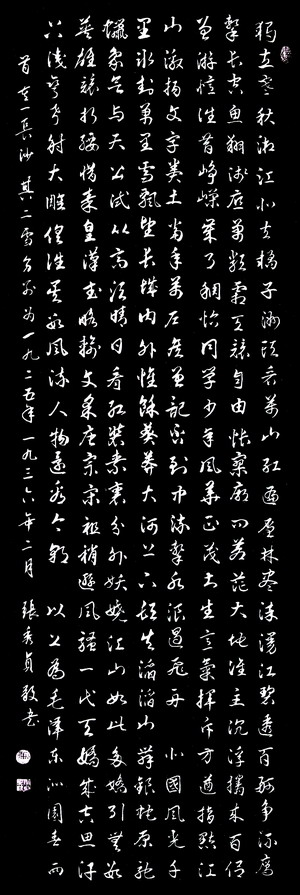 獨立寒秋湘江北去橘子洲頭看萬山紅遍層林盡染漫江碧透百舸爭流鷹
擊長空魚翔淺底萬類霜天競自由悵寥廓問蒼茫大地誰主沉浮攜來百侶
曾游憶往昔崢嶸歲月稠恰同學少年風華正茂書生意氣揮斥方遒指點江
山激揚文字糞土當年萬户侯曾記否到中流擊水浪遏飛舟 北國風光千
里冰封萬里雪飄望長城內外惟餘莽莽大河上下頓失滔滔山舞銀蛇原馳
蠟象欲与天公試比高須晴日看紅裝素裹分外妖嬈江山如此多嬌引無數
英雄競折腰惜秦皇漢武略輸文采唐宗宋祖稍遜風騷一代天驕成吉思汗
只識彎弓射大雕俱往矣數風流人物還看今朝 以上為毛澤東沁園春两
首其一長沙其二雪分別為一九二五年一九三六年二月 張秀貞敬書